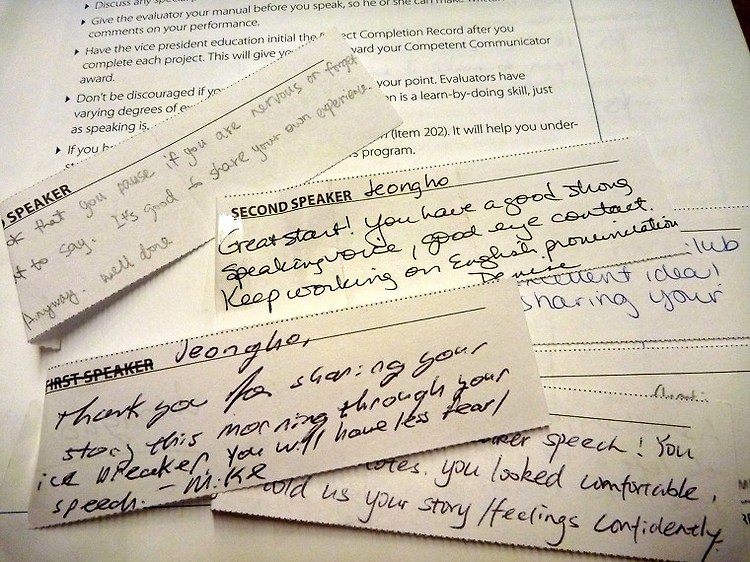 Discuss any
Give the evaluator your manual before you speak, so he or she can make written
comments on your performance.
Have the vice president education initial the ect Completion Record after you
complete each project. This will give you ward your Competent Communicator
award.
Don't be discouraged if yo your point. Evaluators have
varying degrees of e n is a learn-by-doing skill, just
as speaking is.
If you h (Item 202). It will help you under-
s program.
SPEAKER
ok that you pause if you are nervous or forget
t to say. It's good to share your own experience.
Anyway. well done
SECOND SPEAKER Jeongho
Great start! You have a good strong
speaking voice, good eye contact.
Keep working on English pronunciation
Denise
club
excellent idea!
sharing your
FIRST SPEAKER Jeongho,
Thank you for sharing your
story this morning through your
ice breaker. You will have less fear/
speech. - Mike
ker speech! You
notes. you looked comfortable,
told us your story/feelings confidently.